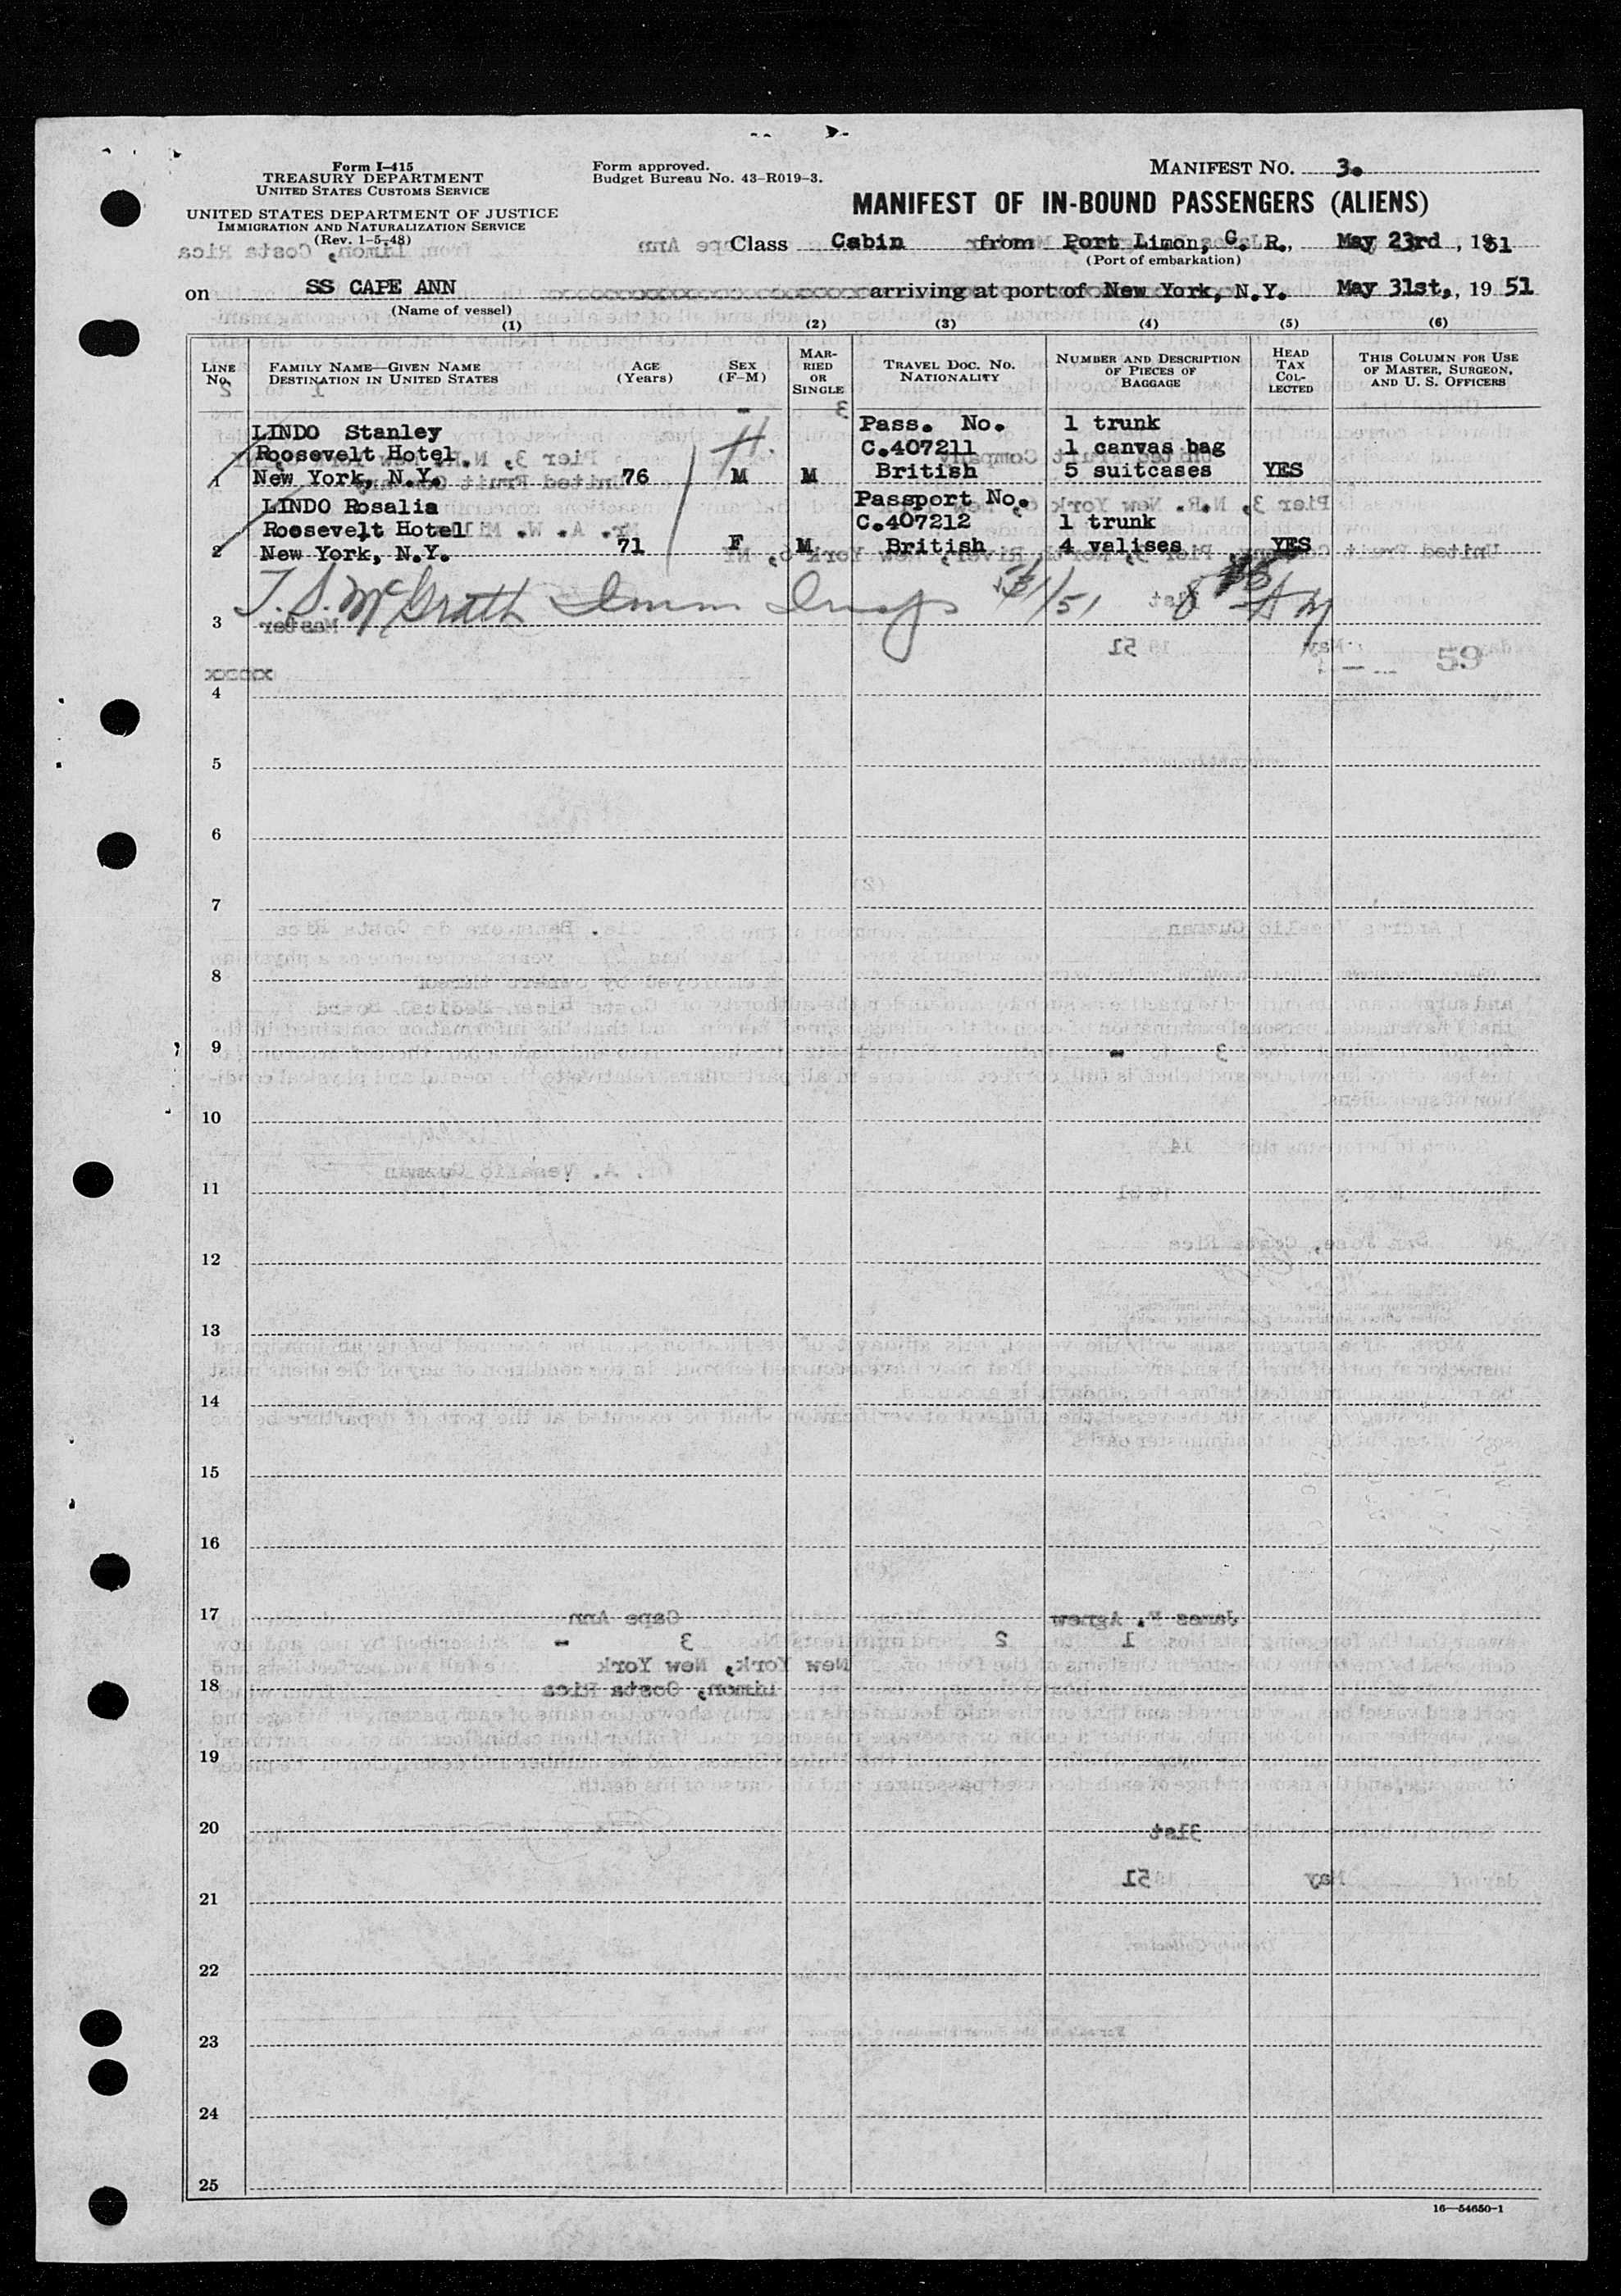 Form I-415
TREASURY DEPARTMENT
UNITED STATES CUSTOMS SERVICE
UNITED STATES DEPARTMENT OF JUSTICE
IMMIGRATION AND NATURALIZATION SERVICE
(Rev. 1-5-48)
Form approved.
Budget Bureau No. 43-R019-3.
MANIFEST NO. 3.
MANIFEST OF IN-BOUND PASSENGERS (ALIENS)
Class Cabin from Port Limon, C. R., May 23rd, 1951
(Port of embarkation)
on SS CAPE ANN arriving at port of New York, N.Y. May 31st., 1951
(Name of vessel)
(1) (2) (3) (4) (5) (6)
LINE No. FAMILY NAME—GIVEN NAME DESTINATION IN UNITED STATES AGE (Years) SEX (F-M) MARRIED OR SINGLE TRAVEL DOC. NO. NATIONALITY NUMBER AND DESCRIPTION OF PIECES OF BAGGAGE HEAD TAX COLLECTED THIS COLUMN FOR USE OF MASTER, SURGEON, AND U. S. OFFICERS
LINDO Stanley Pass. No. 1 trunk
Roosevelt Hotel. C.407211 1 canvas bag
1 New York, N.Y. 76 M M British 5 suitcases YES
LINDO Rosalia Passport No.
Roosevelt Hotel C.407212 1 trunk
2 New York, N.Y. 71 F M British 4 valises YES
T. S. McGrath Imm Insp
3
59
4
5
6
7
8
9
10
11
12
13
14
15
16
17
18
19
20
21
22
23
24
25
16—54650-1